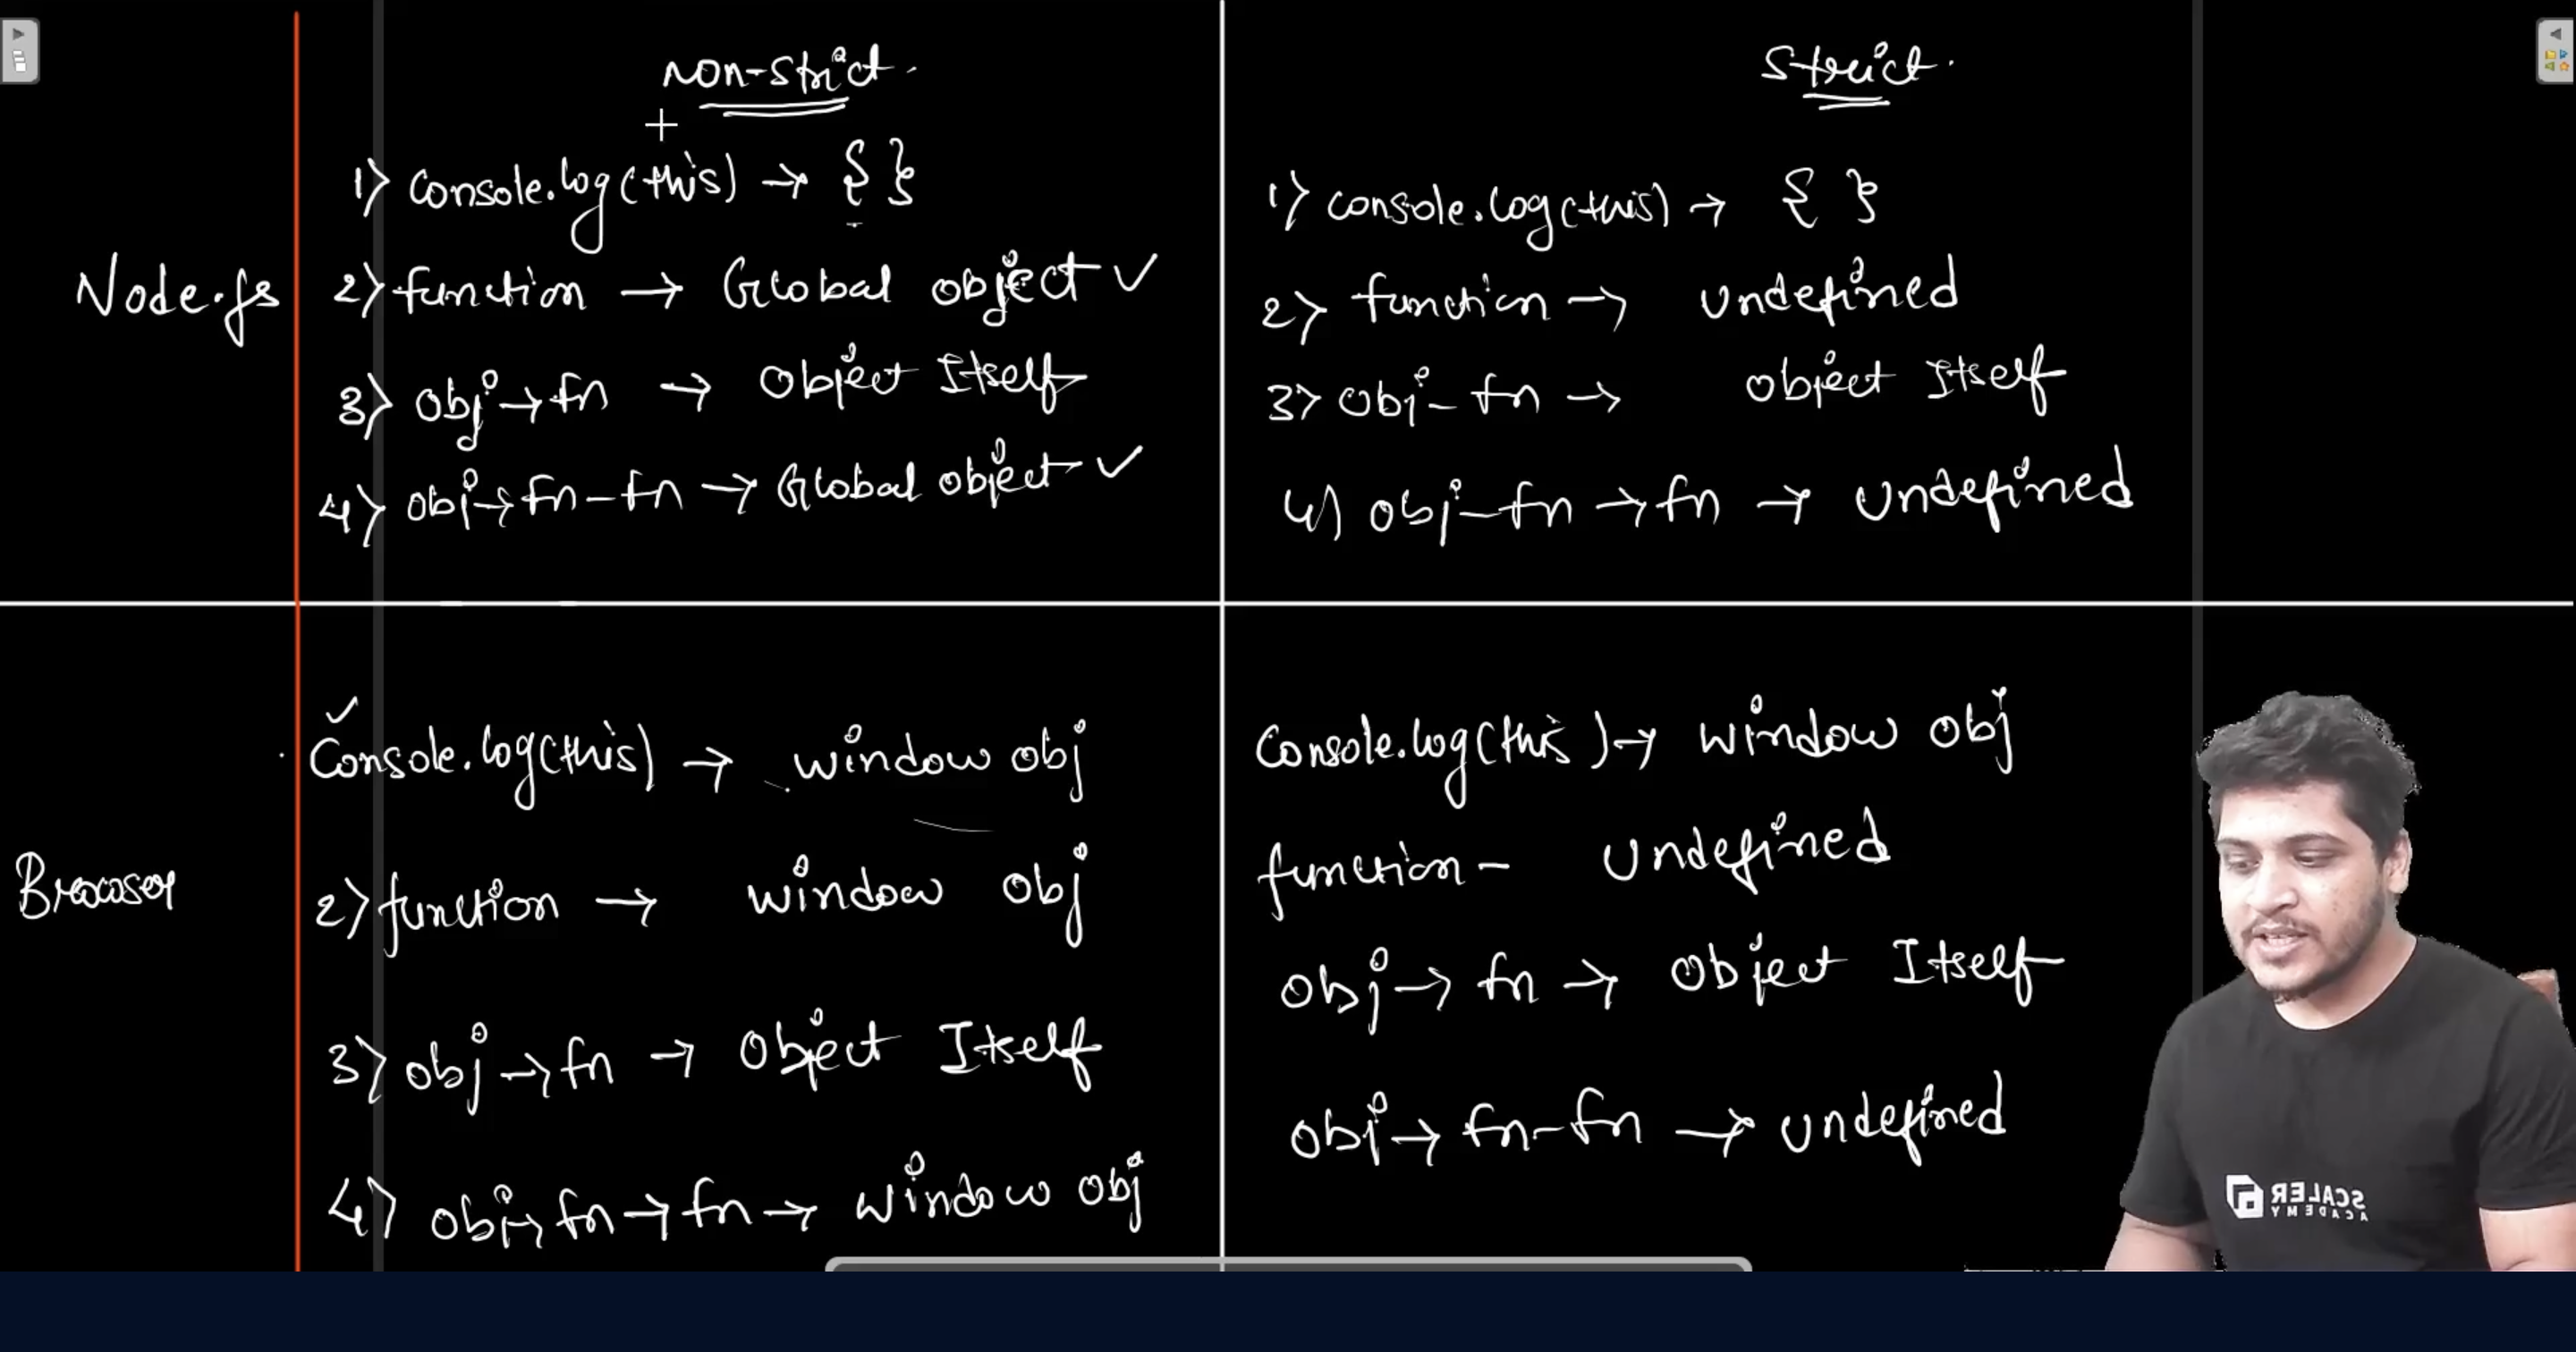 Non-Strict.
1) Console.log(this) → { }
Node.js
2) function → Global object ✓
3) Obj → fn → Object Itself
4) Obj → fn - fn → Global object ✓
Strict.
1) console.log(this) → { }
2) function → Undefined
3) Obj - fn → Object Itself
4) Obj - fn → fn → Undefined
✓
Console.log(this) → window obj
Browser
2) function → window obj
3) Obj → fn → Object Itself
4) obj → fn → fn → window obj
Console.log(this) → window obj
function - Undefined
Obj → fn → Object Itself
Obj → fn - fn → Undefined
SCALER
ACADEMY